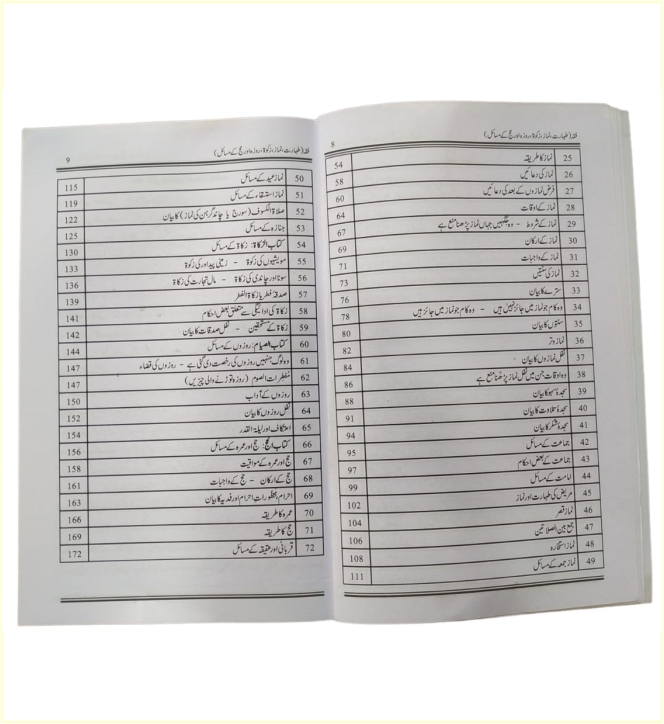 فقہ (طہارت، نماز، زکوٰۃ، روزہ اور حج کے مسائل) 8
25 نماز کا طریقہ 54
26 نماز کی دعائیں 58
27 فرض نمازوں کے بعد کی دعائیں 60
28 نماز کے اوقات 64
29 نماز کے شروط - وہ جگہیں جہاں نماز پڑھنا منع ہے 67
30 نماز کے ارکان 69
31 نماز کے واجبات 71
32 نماز کی سنتیں 73
33 سترے کا بیان 76
34 وہ کام جو نماز میں جائز نہیں ہیں - وہ کام جو نماز میں جائز ہیں 78
35 سنتوں کا بیان 80
36 نماز وتر 82
37 نفل نمازوں کا بیان 84
38 وہ اوقات جن میں نفل نماز پڑھنا منع ہے 86
39 سجدۂ سہو کا بیان 88
40 سجدۂ تلاوت کا بیان 91
41 سجدۂ شکر کا بیان 94
42 جماعت کے مسائل 95
43 جماعت کے بعض احکام 97
44 امامت کے مسائل 99
45 مریض کی طہارت اور نماز 102
46 نماز قصر 104
47 جمع بین الصلاتین 106
48 نماز استخارہ 108
49 نماز جمعہ کے مسائل 111
فقہ (طہارت، نماز، زکوٰۃ، روزہ اور حج کے مسائل) 9
50 نماز عید کے مسائل 115
51 نماز استسقاء کے مسائل 119
52 صلاۃ الکسوف (سورج یا چاند گرہن کی نماز) کا بیان 122
53 جنازہ کے مسائل 125
54 کتاب الزکاۃ: زکاۃ کے مسائل 130
55 مویشیوں کی زکوۃ - زمینی پیداور کی زکوۃ 133
56 سونا اور چاندی کی زکاۃ - مال تجارت کی زکاۃ 136
57 صدقۂ فطر یا زکاۃ الفطر 139
58 زکاۃ کی ادائیگی سے متعلق بعض احکام 141
59 زکاۃ کے مستحقین - نفل صدقات کا بیان 142
60 کتاب الصیام: روزوں کے مسائل 144
61 وہ لوگ جنہیں روزوں کی رخصت دی گئی ہے - روزوں کی قضاء 147
62 مفطرات الصوم (روزہ توڑنے والی چیزیں) 147
63 روزوں کے آداب 150
64 نفل روزوں کا بیان 152
65 اعتکاف اور لیلۃ القدر 154
66 کتاب الحج: حج اور عمرہ کے مسائل 156
67 حج اور عمرہ کے مواقیت 158
68 حج کے ارکان - حج کے واجبات 161
69 احرام، محظورات احرام اور فدیہ کا بیان 163
70 عمرہ کا طریقہ 166
71 حج کا طریقہ 169
72 قربانی اور عقیقہ کے مسائل 172